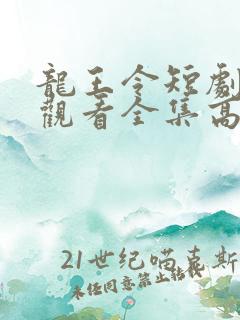 龍王令短劇
觀看全集高
21世纪喵克斯
未经同意禁止转载